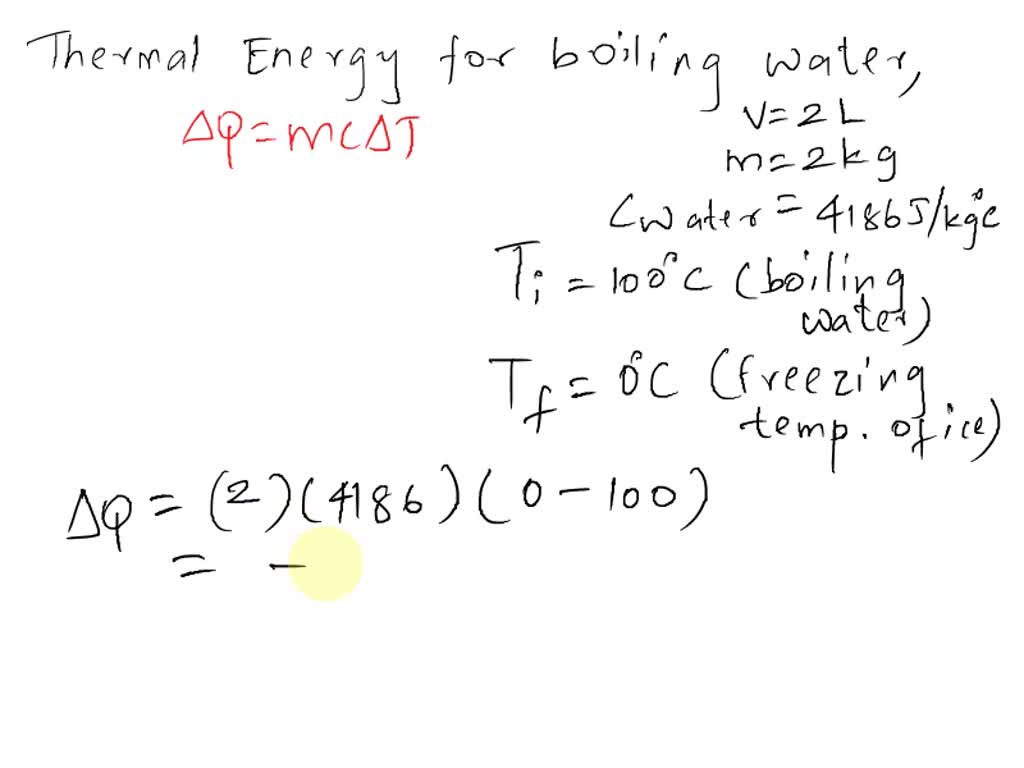 Thermal Energy for boiling water,
ΔQ = mCΔT
V = 2 L
m = 2 kg
Cwater = 4186 J/kg°C
Ti = 100°C (boiling
water)
Tf = 0°C (freezing
temp. of ice)
ΔQ = (2)(4186)(0 - 100)
= -